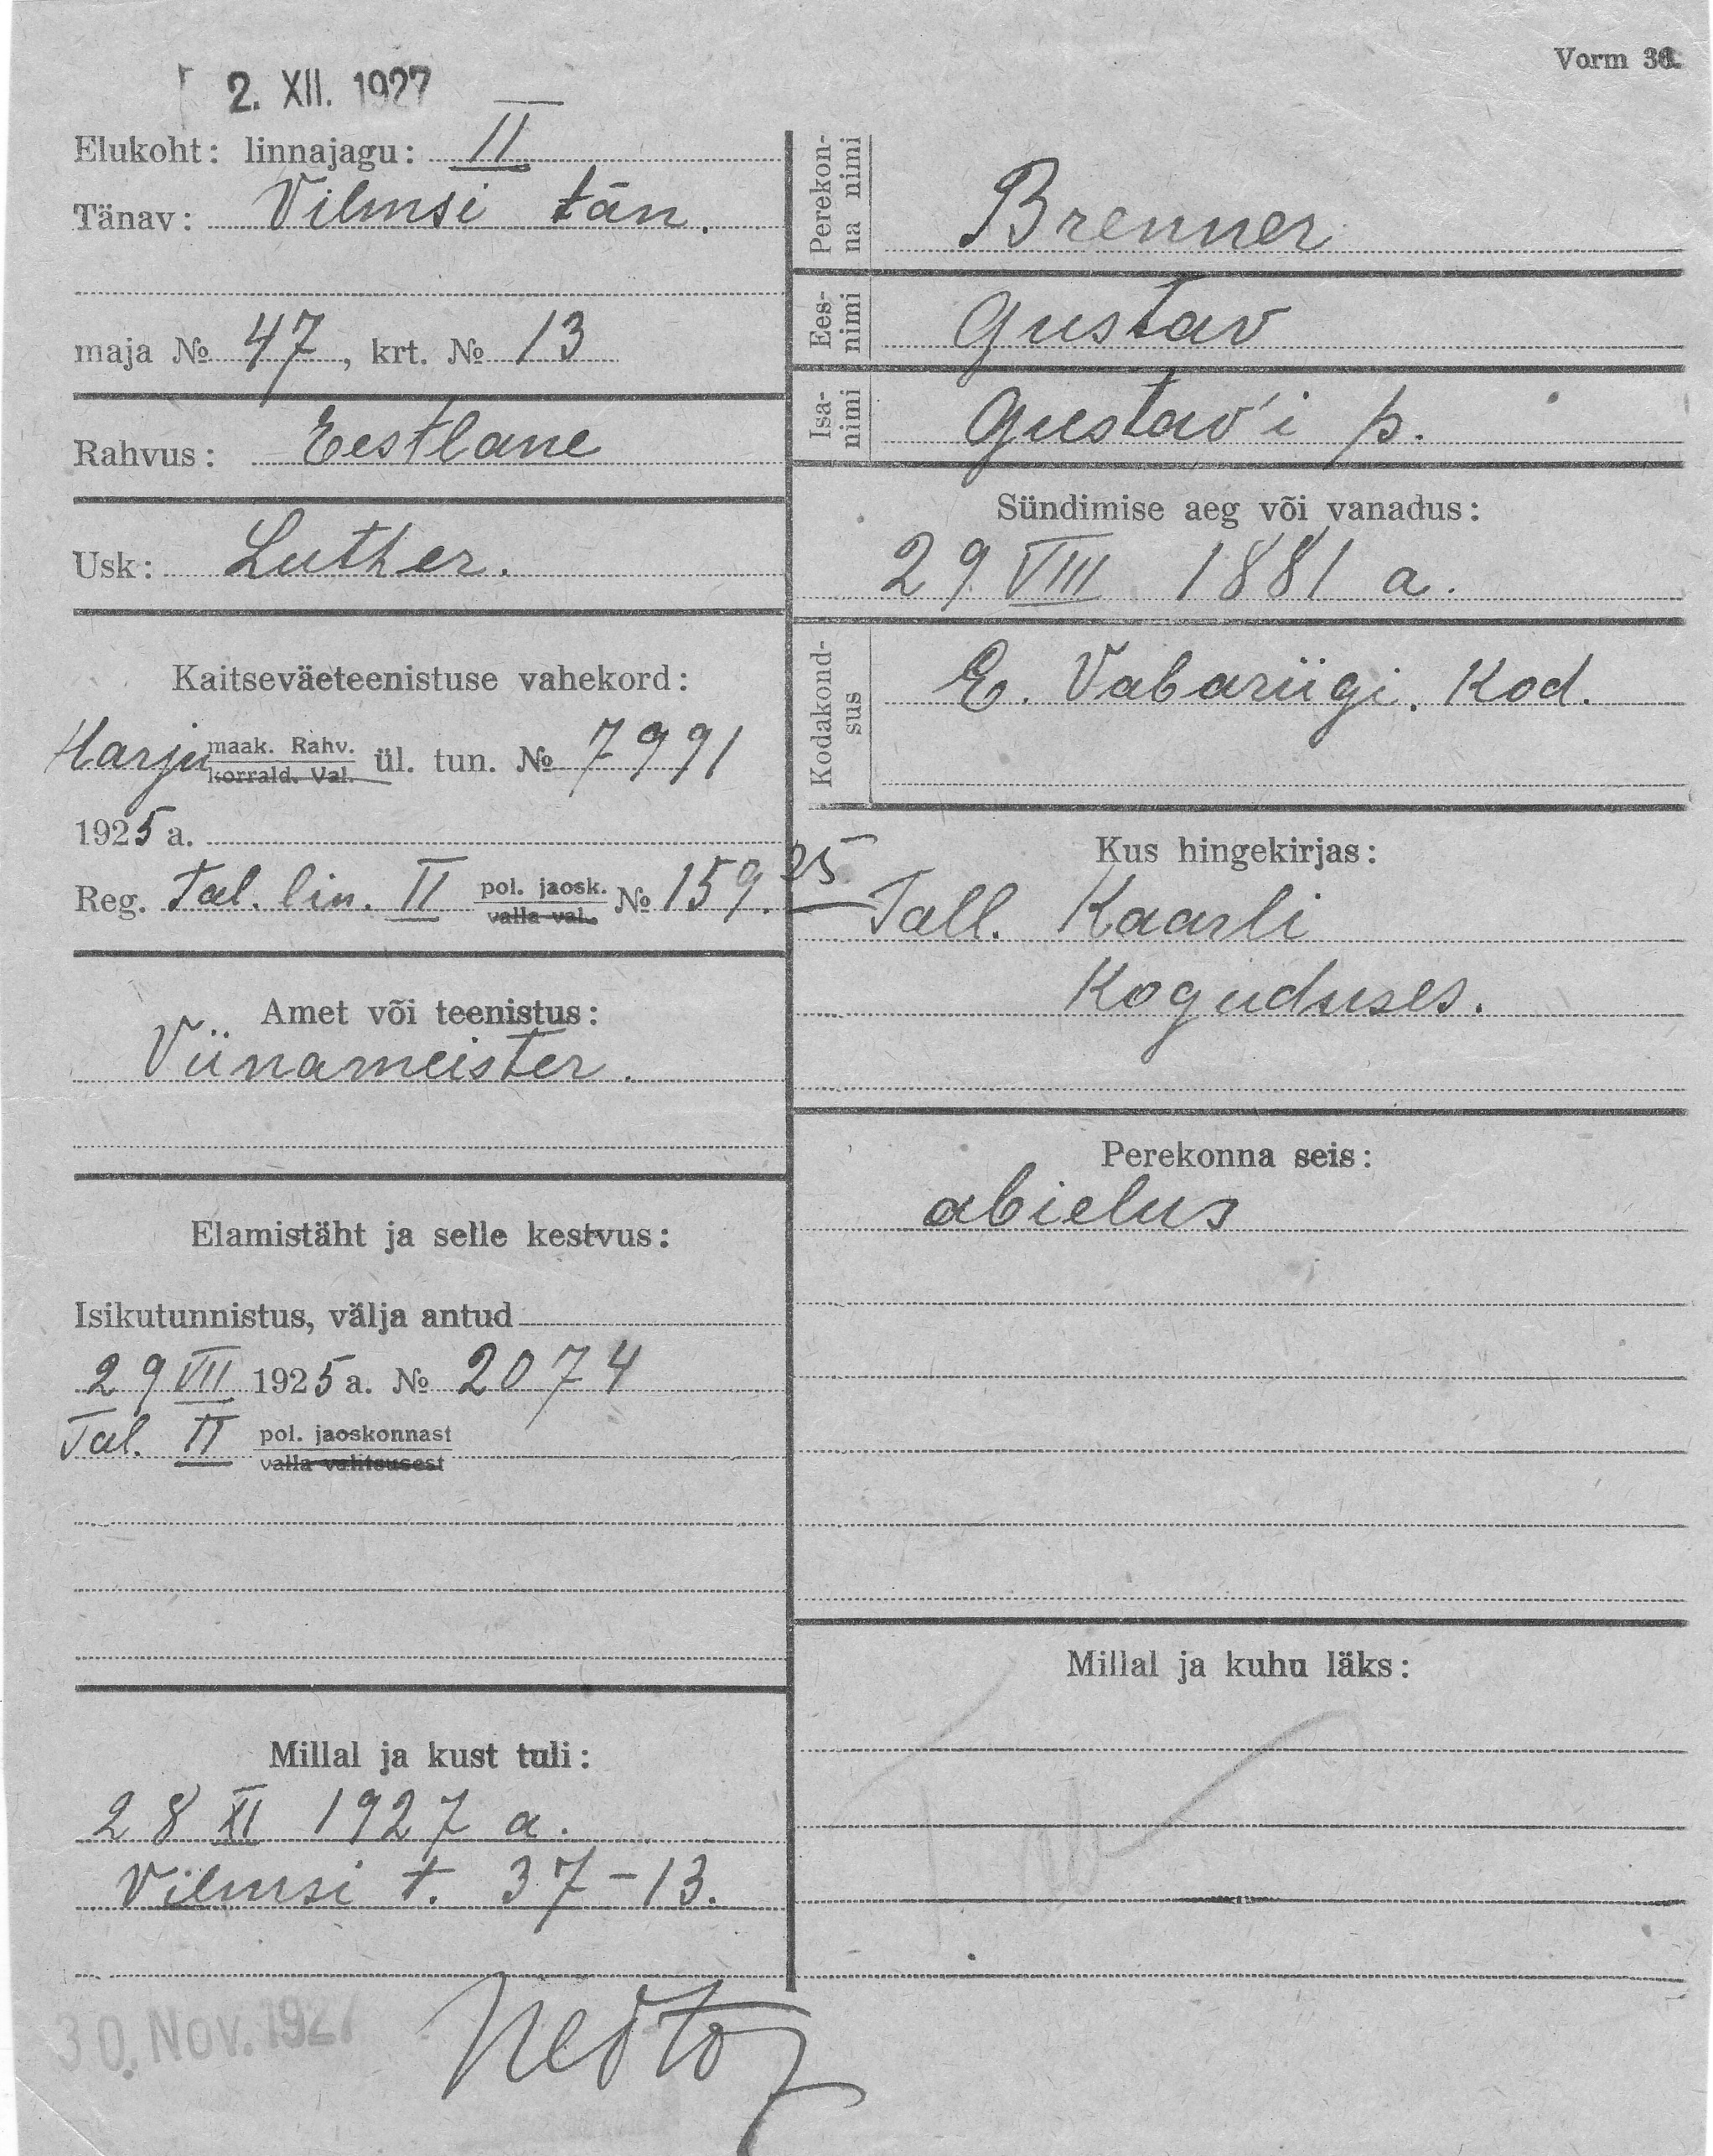 Vorm 36.
2. XII. 1927
Elukoht: linnajagu: II
Tänav: Vilmsi tän.
maja № 47, krt. № 13
Rahvus: Eestlane
Usk: Luther.
Kaitseväeteenistuse vahekord:
Harju maak. Rahv. ül. tun. № 7991
korrald. Val.
1925 a.
Reg. Tal. lin. II pol. jaosk. № 159. 25.
valla val.
Amet või teenistus:
Viinameister.
Elamistäht ja selle kestvus:
Isikutunnistus, välja antud
29 VII 1925 a. № 2074
Tal. II pol. jaoskonnast
valla valitsusest
Millal ja kust tuli:
28 XI 1927 a.
Vilmsi t. 37-13.
30. Nov. 1927
Perekonna nimi
Brenner
Eesnimi
Gustav
Isanimi
Gustav'i p.
Sündimise aeg või vanadus:
29 VIII 1881 a.
Kodakondsus
E. Vabariigi. Kod.
Kus hingekirjas:
Tall. Kaarli
Koguduses.
Perekonna seis:
abielus
Millal ja kuhu läks: